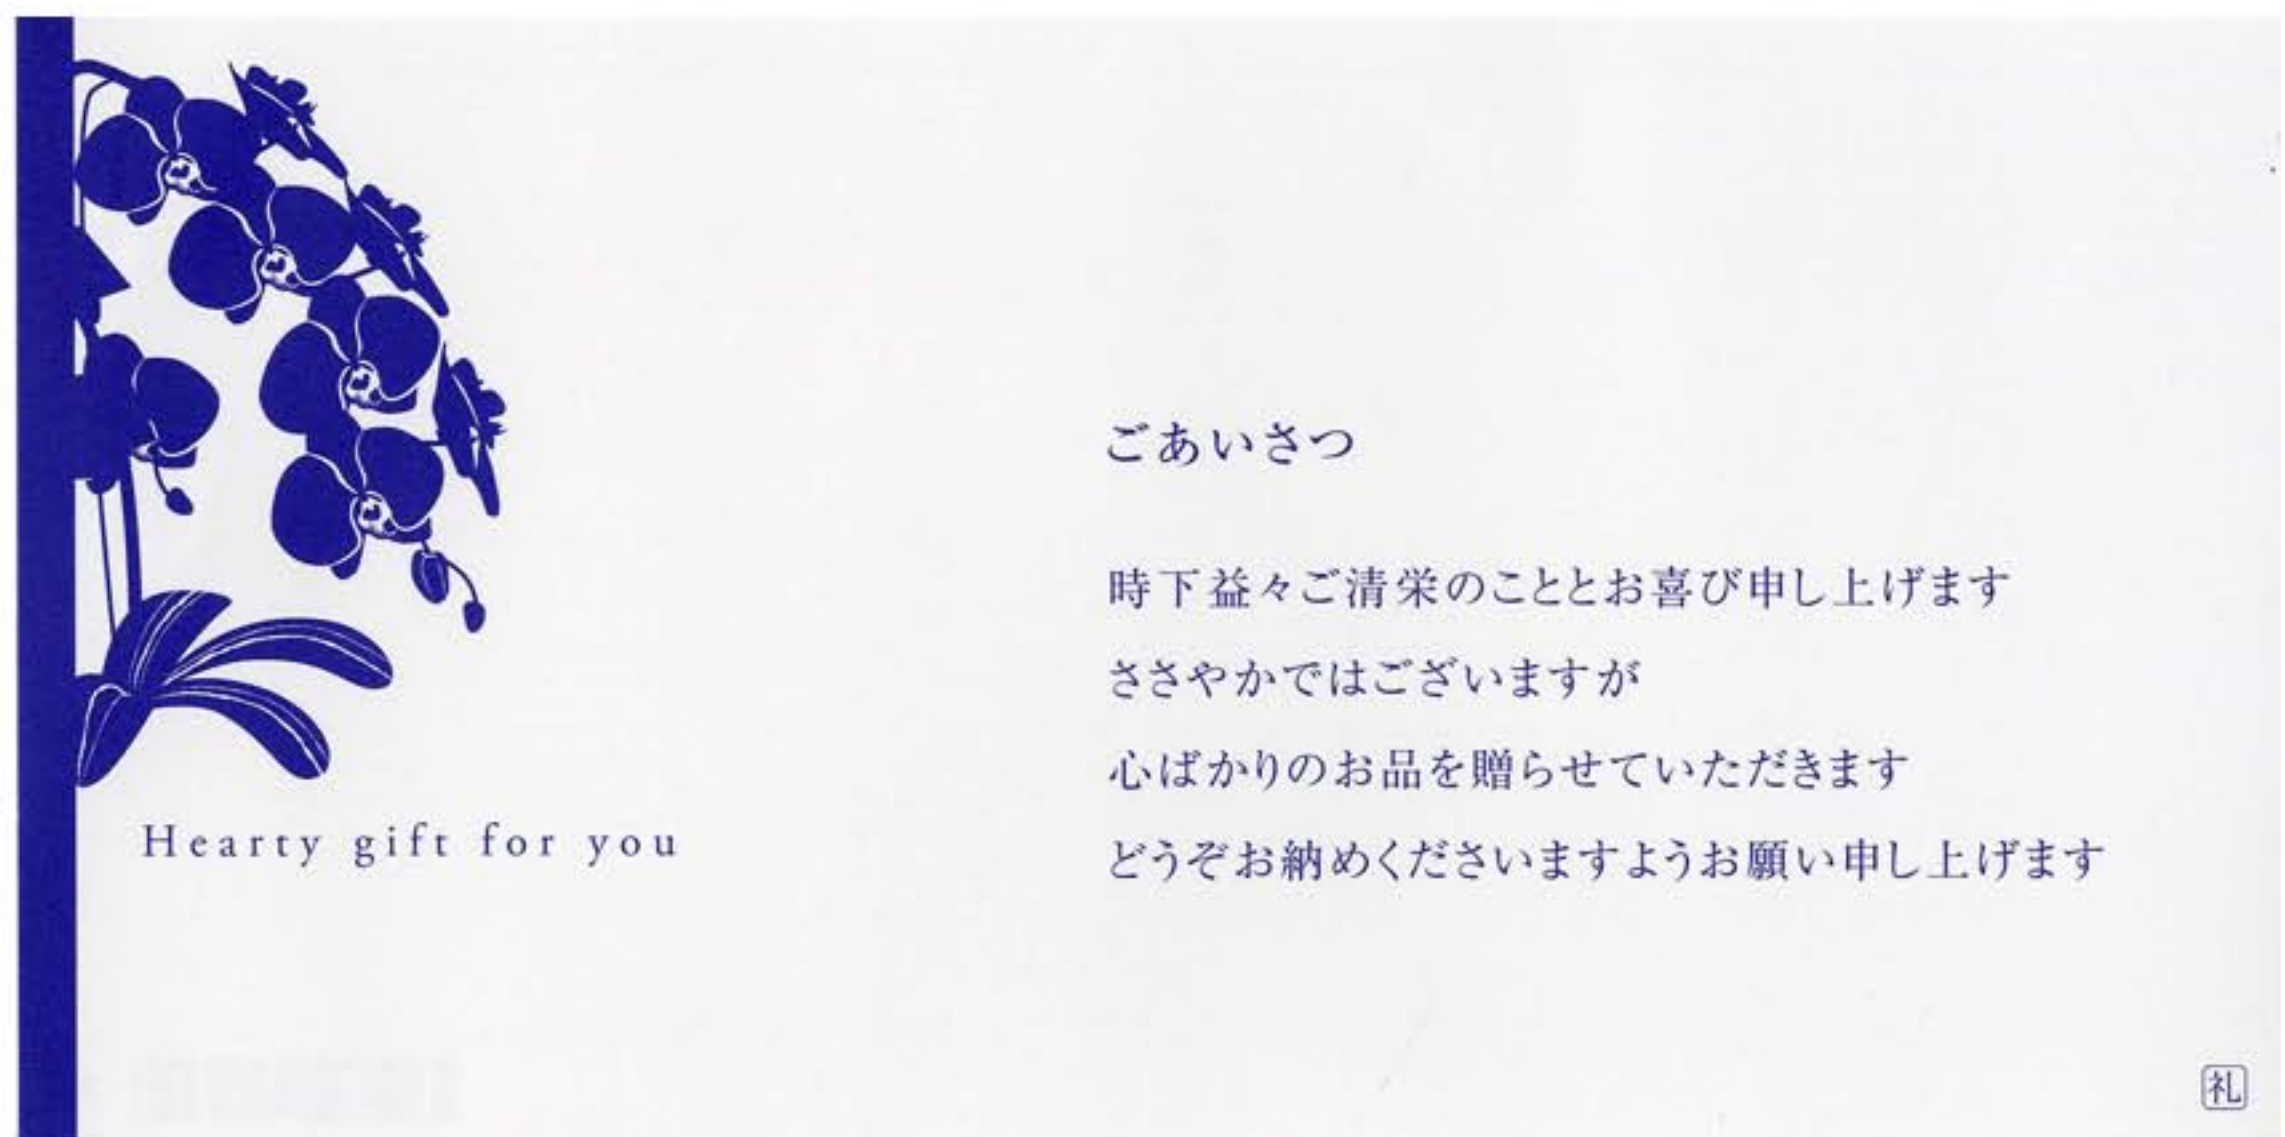 Hearty gift for you
ごあいさつ
時下益々ご清栄のこととお喜び申し上げます
ささやかではございますが
心ばかりのお品を贈らせていただきます
どうぞお納めくださいますようお願い申し上げます
礼